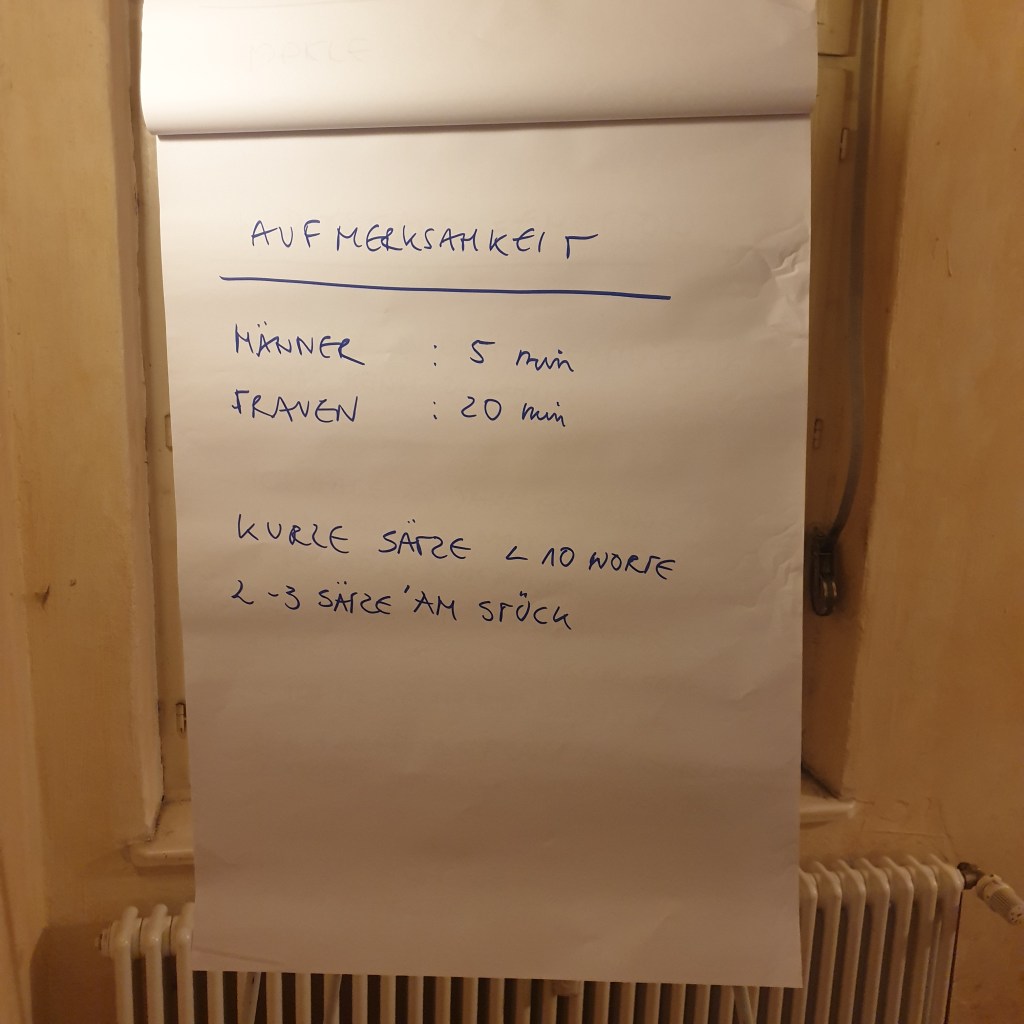 AUFMERKSAMKEIT
MÄNNER : 5 min
FRAUEN : 20 min
KURZE SÄTZE < 10 WORTE
2-3 SÄTZE 'AM STÜCK